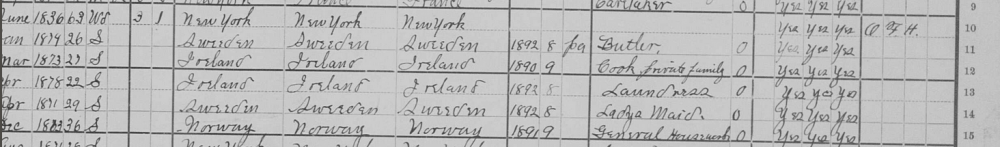 Caretaker 0 9
June 1836 63 Wd 3 1 New York New York New York Yes Yes Yes O F H. 10
Jan 1874 26 S Sweeden Sweeden Sweeden 1892 8 pa Butler 0 Yes Yes Yes 11
Mar 1873 27 S Ireland Ireland Ireland 1890 9 Cook private family 0 Yes Yes Yes 12
Apr 1878 22 S Ireland Ireland Ireland 1892 8 Laundress 0 Yes Yes Yes 13
Apr 1871 29 S Sweeden Sweeden Sweeden 1892 8 Ladys Maid 0 Yes Yes Yes 14
Dec 1863 36 S Norway Norway Norway 1891 9 General Housework 0 Yes Yes Yes 15